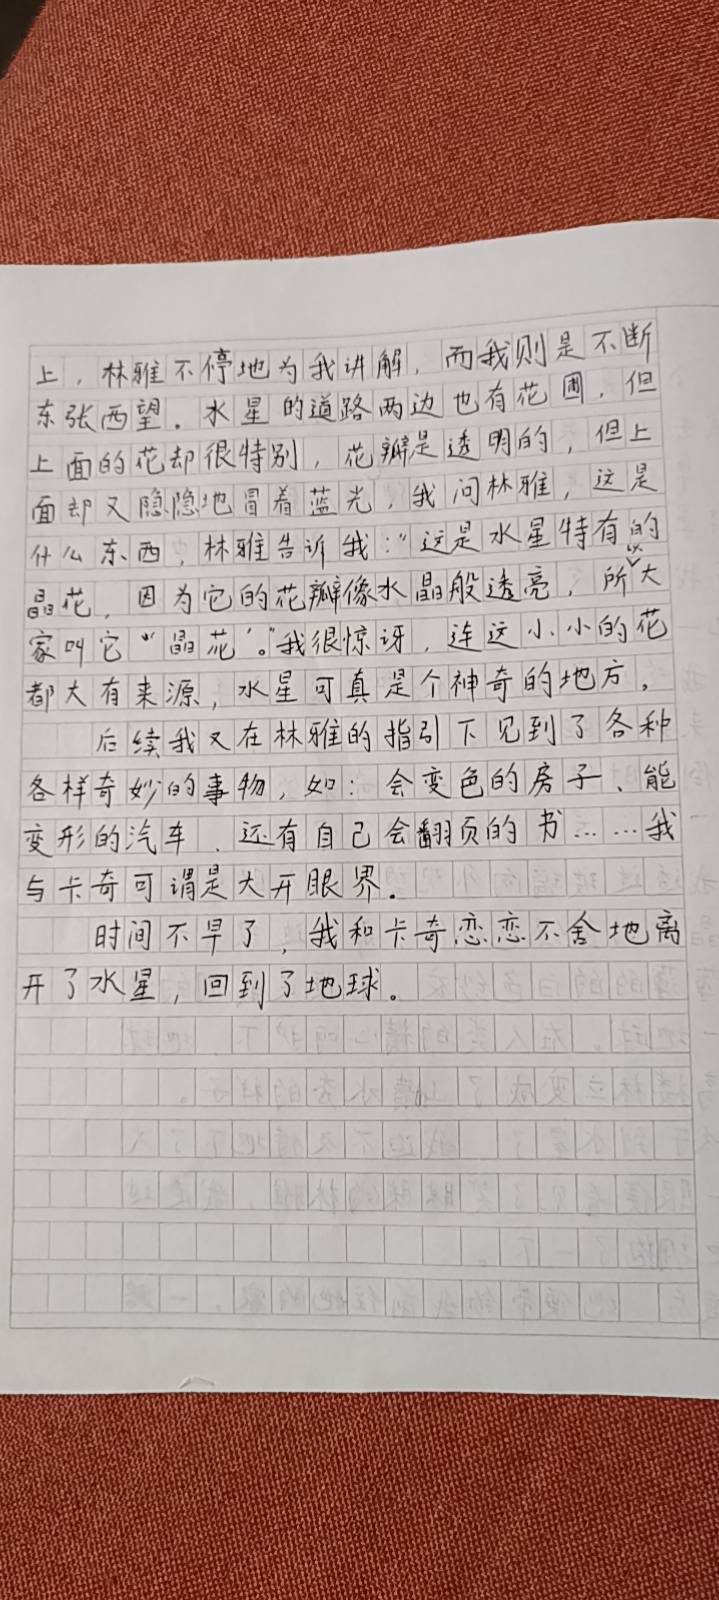 上，林雅不停地为我讲解，而我则是不断
东张西望。水星的道路两边也有花圃，但
上面的花却很特别，花瓣是透明的，但上
面却又隐隐地冒着蓝光，我问林雅，这是
什么东西，林雅告诉我：“这是水星特有的
晶花，因为它的花瓣像水晶般透亮，所以大
家叫它“晶花’。”我很惊讶，连这小小的花
都大有来源，水星可真是个神奇的地方。
后续我又在林雅的指引下见到了各种
各样奇妙的事物，如：会变色的房子、能
变形的汽车、还有自己会翻页的书……我
与卡奇可谓是大开眼界。
时间不早了，我和卡奇恋恋不舍地离
开了水星，回到了地球。